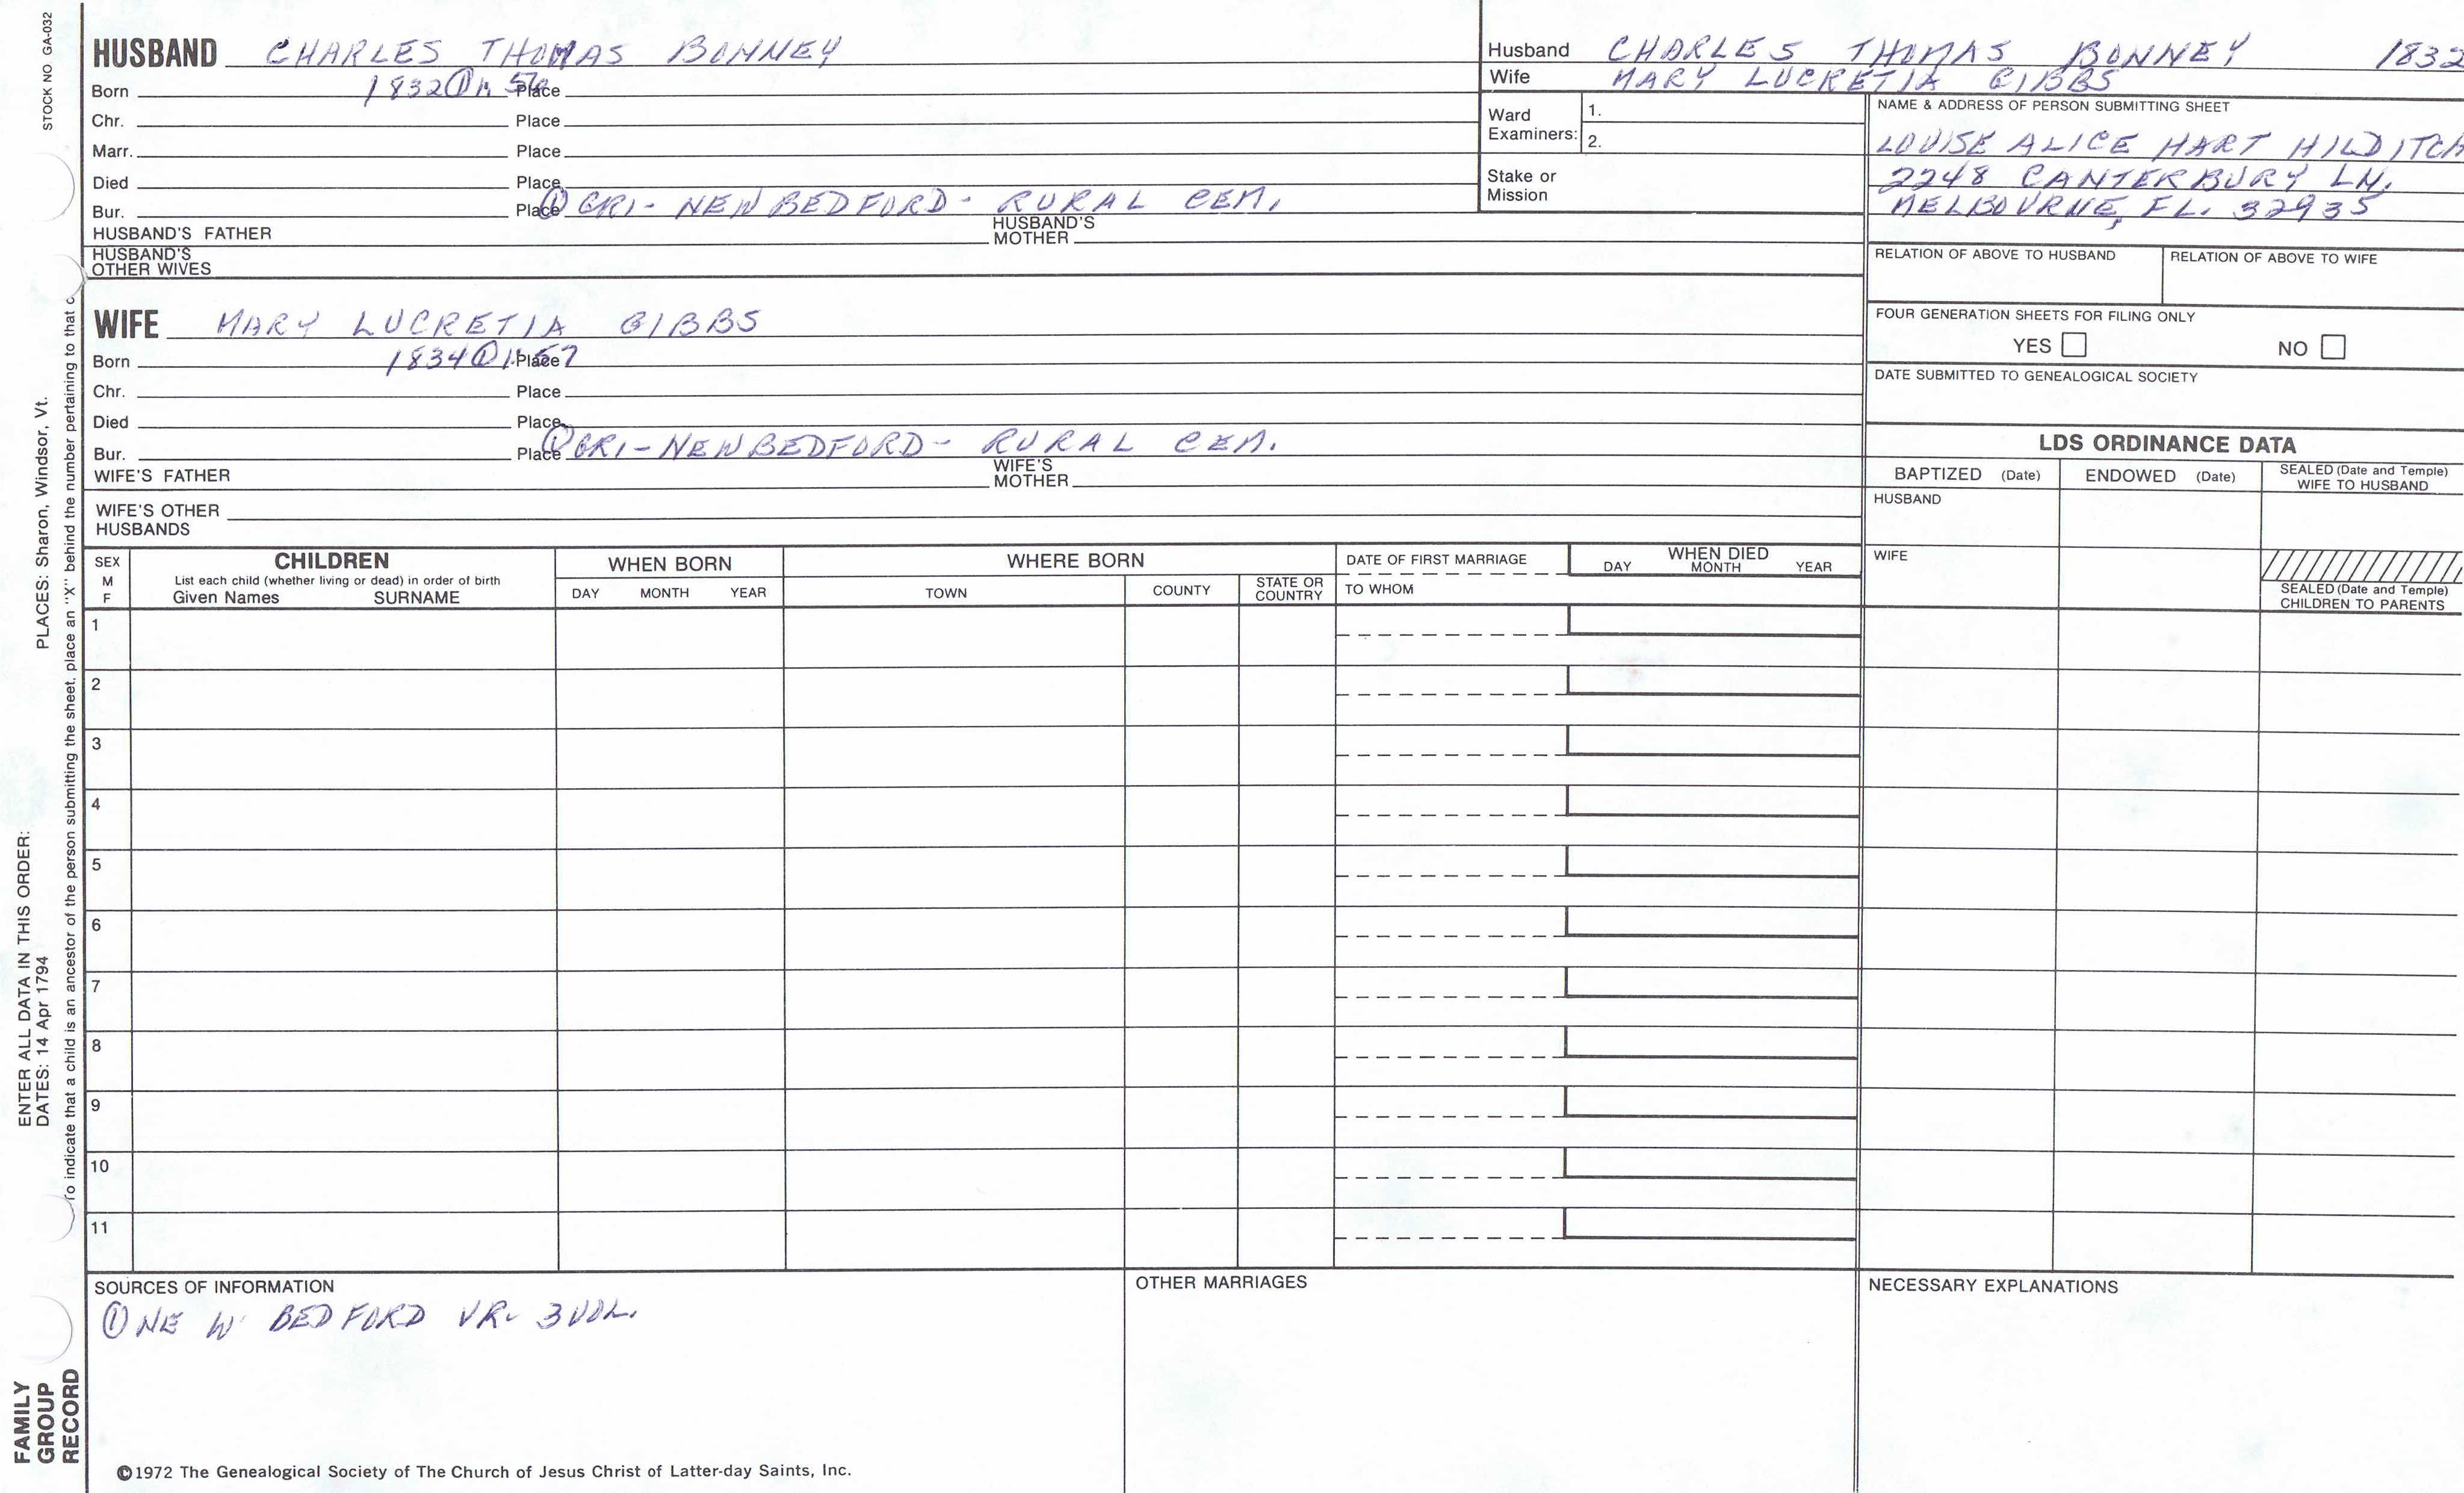 STOCK NO GA-032
HUSBAND CHARLES THOMAS BONNEY
Born 1832 ① Place
Chr. Place
Marr. Place
Died Place
Bur. Place ① GRI - NEW BEDFORD - RURAL CEM.
HUSBAND'S FATHER HUSBAND'S MOTHER
HUSBAND'S OTHER WIVES
WIFE MARY LUCRETIA GIBBS
Born 1834 ① Place
Chr. Place
Died Place
Bur. Place ① GRI - NEW BEDFORD - RURAL CEM.
WIFE'S FATHER WIFE'S MOTHER
WIFE'S OTHER HUSBANDS
Husband CHARLES THOMAS BONNEY 1832
Wife MARY LUCRETIA GIBBS
Ward Examiners: 1.
2.
Stake or Mission
NAME & ADDRESS OF PERSON SUBMITTING SHEET
LOUISE ALICE HART HILDITCH
2248 CANTERBURY LN.
MELBOURNE, FL. 32935
RELATION OF ABOVE TO HUSBAND RELATION OF ABOVE TO WIFE
FOUR GENERATION SHEETS FOR FILING ONLY
YES NO
DATE SUBMITTED TO GENEALOGICAL SOCIETY
LDS ORDINANCE DATA
BAPTIZED (Date) ENDOWED (Date) SEALED (Date and Temple) WIFE TO HUSBAND
HUSBAND
WIFE
SEALED (Date and Temple) CHILDREN TO PARENTS
SEX M F
CHILDREN
List each child (whether living or dead) in order of birth
Given Names SURNAME
WHEN BORN
DAY MONTH YEAR
WHERE BORN
TOWN COUNTY STATE OR COUNTRY
DATE OF FIRST MARRIAGE
TO WHOM
WHEN DIED
DAY MONTH YEAR
1
2
3
4
5
6
7
8
9
10
11
SOURCES OF INFORMATION
① NE W BEDFORD VR- 3 VOL.
OTHER MARRIAGES
NECESSARY EXPLANATIONS
©1972 The Genealogical Society of The Church of Jesus Christ of Latter-day Saints, Inc.
FAMILY GROUP RECORD
ENTER ALL DATA IN THIS ORDER:
DATES: 14 Apr 1794 PLACES: Sharon, Windsor, Vt.
To indicate that a child is an ancestor of the person submitting the sheet, place an "X" behind the number pertaining to that